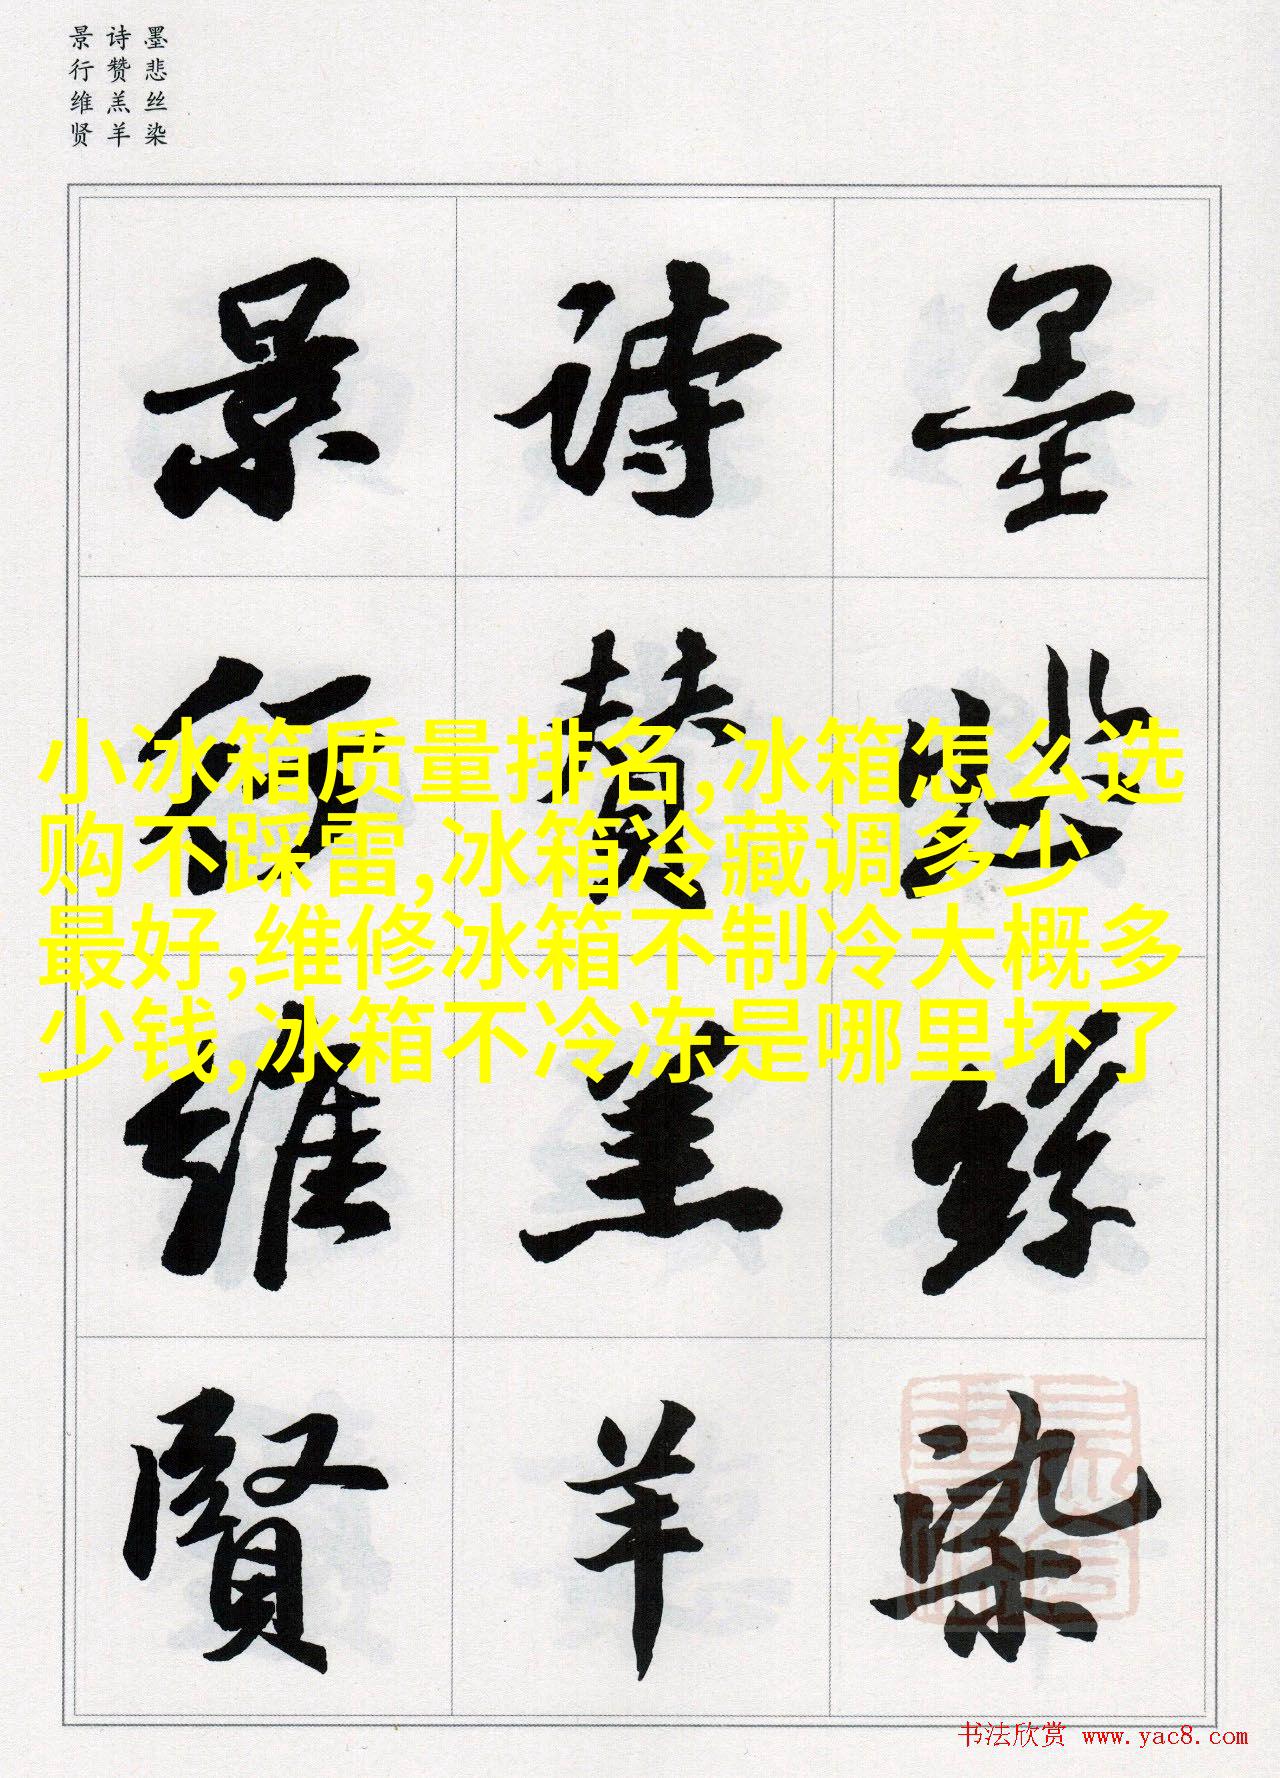 墨悲丝染
诗赞羔羊
景行维贤
墨悲絲染
詩贊羔羊
景行維賢
小冰箱质量排名,冰箱怎么选
购不踩雷,冰箱冷藏调多少
最好,维修冰箱不制冷大概多
少钱,冰箱不冷冻是哪里坏了
书法欣赏 www.yac8.com